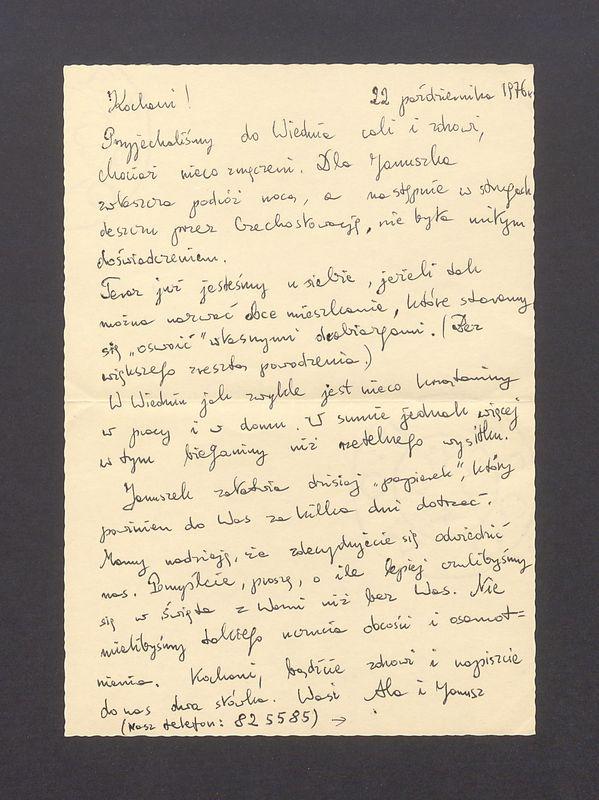 Kochani! 22 października 1976 r.
Przyjechaliśmy do Wiednia cali i zdrowi,
chociaż nieco zmęczeni. Dla Januszka
zwłaszcza podróż nocą, a następnie w strugach
deszczu przez Czechosłowację, nie była miłym
doświadczeniem.
Teraz już jesteśmy u siebie, jeżeli tak
można nazwać obce mieszkanie, które staramy
się „oswoić” własnymi drobiazgami. (Bez
większego zresztą powodzenia.)
W Wiedniu jak zwykle jest nieco
w pracy i w domu. W sumie jednak więcej
w tym bieganiny niż rzetelnego wysiłku.
Januszek załatwia dzisiaj „papierek”, który
powinien do Was za kilka dni dotrzeć.
Mamy nadzieję, że zdecydujecie się odwiedzić
nas. Pomyślcie, proszę, o ile lepiej czulibyśmy
się w Święta z Wami niż bez Was. Nie
mielibyśmy takiego uczucia obcości i osamot=
nienia. Kochani, bądźcie zdrowi i napiszcie
do nas dwa słówka. Wasi Ala i Janusz
(Nasz telefon: 82 55 85) →